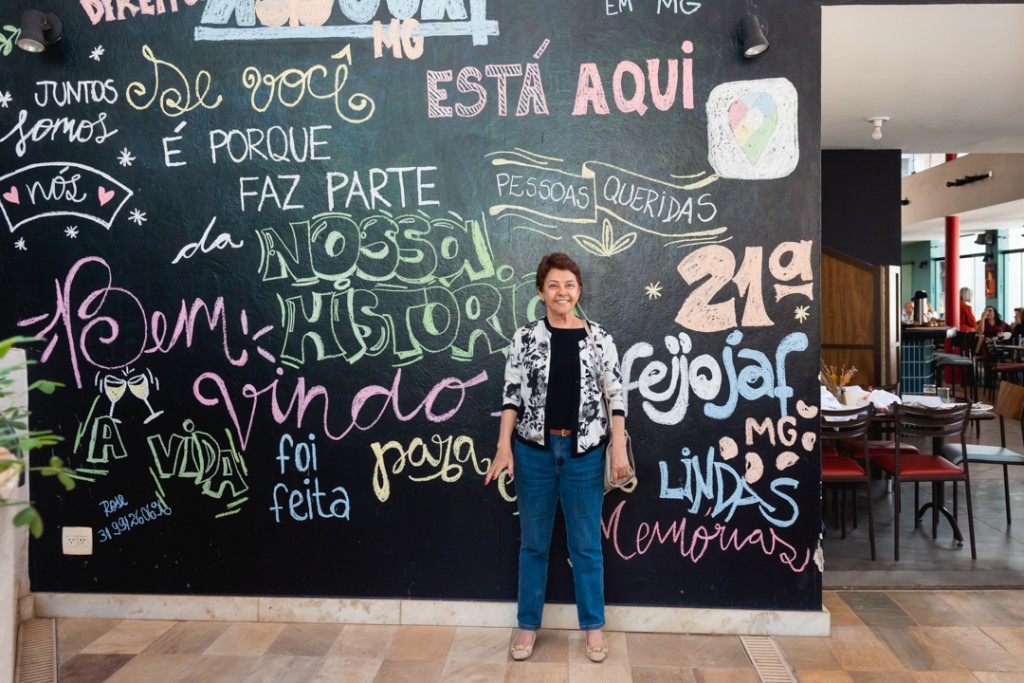 DIREITO
MG
EM MG
JUNTOS
somos
nós
Se você
ESTÁ AQUI
É PORQUE
FAZ PARTE
da
NOSSA
HISTORI
PESSOAS QUERIDAS
21ª
feijojaf
MG
LINDAS
Memórias
Bem
Vindo
A VIDA
foi
feita
para
Rose